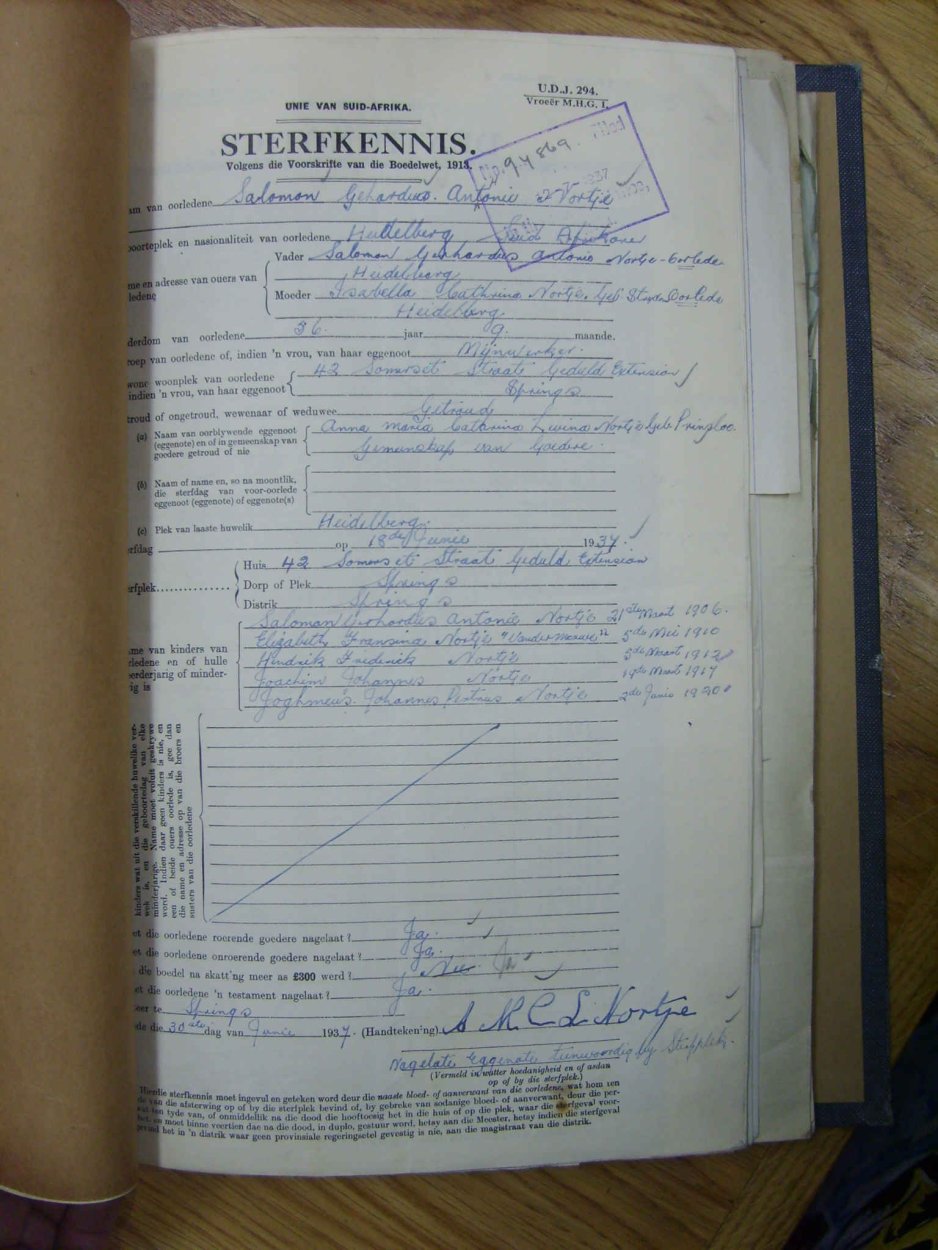 U.D.J. 294.
Vroeër M.H.G. I.
UNIE VAN SUID-AFRIKA.
STERFKENNIS.
Volgens die Voorskrifte van die Boedelwet, 1913.
No. 94869
am van oorledene Salomon Gehardus Antonie Nortjé
boorteplek en nasionaliteit van oorledene Heidelberg Suid Afrikane
Vader Salomon Gerhardus Antonie Nortje - Oorlede
me en adresse van ouers van
ledene
Heidelberg
Moeder Isabella Cathrina Nortje. Geb Oorlede
Heidelberg.
derdom van oorledene 36. jaar 9. maande.
roep van oorledene of, indien 'n vrou, van haar eggenoot Mijnwerker.
wone woonplek van oorledene
indien 'n vrou, van haar eggenoot
42 Somerset Straat Geduld Extension
Springs
troud of ongetroud, wewenaar of weduwee Getroud
(a) Naam van oorblywende eggenoot
(eggenote) en of in gemeenskap van
goedere getroud of nie
Anna Maria Catharina Levina Nortje Geb Prinsloo.
Gemeenskap van Goedere.
(b) Naam of name en, so na moontlik,
die sterfdag van voor-oorlede
eggenoot (eggenote) of eggenote(s)
(c) Plek van laaste huwelik Heidelberg.
erfdag op 18de Junie 1937.
Huis 42 Somerset Straat Geduld Extension
erfplek Dorp of Plek Springs
Distrik Springs
me van kinders van
rledene en of hulle
eerderjarig of minder-
rig is
Salomon Gerhardus Antonie Nortje 21ste Maart 1906.
Elizabeth Fransina Nortje "Vander Merwe" 5de Mei 1910
Hendrik Frederick Nortje 3de Maart 1912
Joachim Johannes Nortje 19de Maart 1917
Johannes Petrus Nortje 2de Junie 1920
kinders wat uit die verskillende huwelike ver-
wek is, en die geboortedag van elke
minderjarige. Name moet voluit geskrywe
word. Indien daar geen kinders is nie, en
een of beide ouers oorlede is, gee dan
die name en adresse op van die broers en
susters van die oorledene
et die oorledene roerende goedere nagelaat? Ja.
et die oorledene onroerende goedere nagelaat? Ja.
die boedel na skatt'ng meer as £300 werd? Nee Ja
et die oorledene 'n testament nagelaat? Ja.
eer te Springs
de die 30ste dag van Junie 1937. (Handtekening) A M C L Nortje
Nagelate Eggenote teenwoordig by Sterfplek.
(Vermeld in watter hoedanigheid en of aldan
op of by die sterfplek.)
Hierdie sterfkennis moet ingevul en geteken word deur die naaste bloed- of aanverwant van die oorledene, wat hom ten
de van die afsterwing op of by die sterfplek bevind of, by gebreke van sodanige bloed- of aanverwant, deur die per-
wat ten tyde van, of onmiddellik na die dood die hooftoesig het in die huis of op die plek, waar die sterfgeval voor-
het, en moet binne veertien dae na die dood, in duplo, gestuur word, hetsy aan die Meester, hetsy indien die sterfgeval
gevind het in 'n distrik waar geen provinsiale regeringsetel gevestig is nie, aan die magistraat van die distrik.